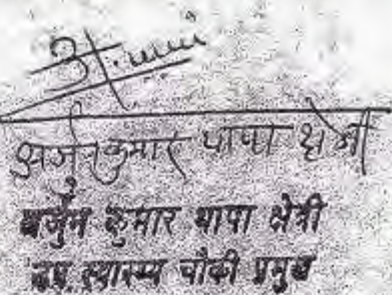 अर्जुनकुमार थापा क्षेत्री
अर्जुन कुमार थापा क्षेत्री
उप स्वास्थ्य चौकी प्रमुख